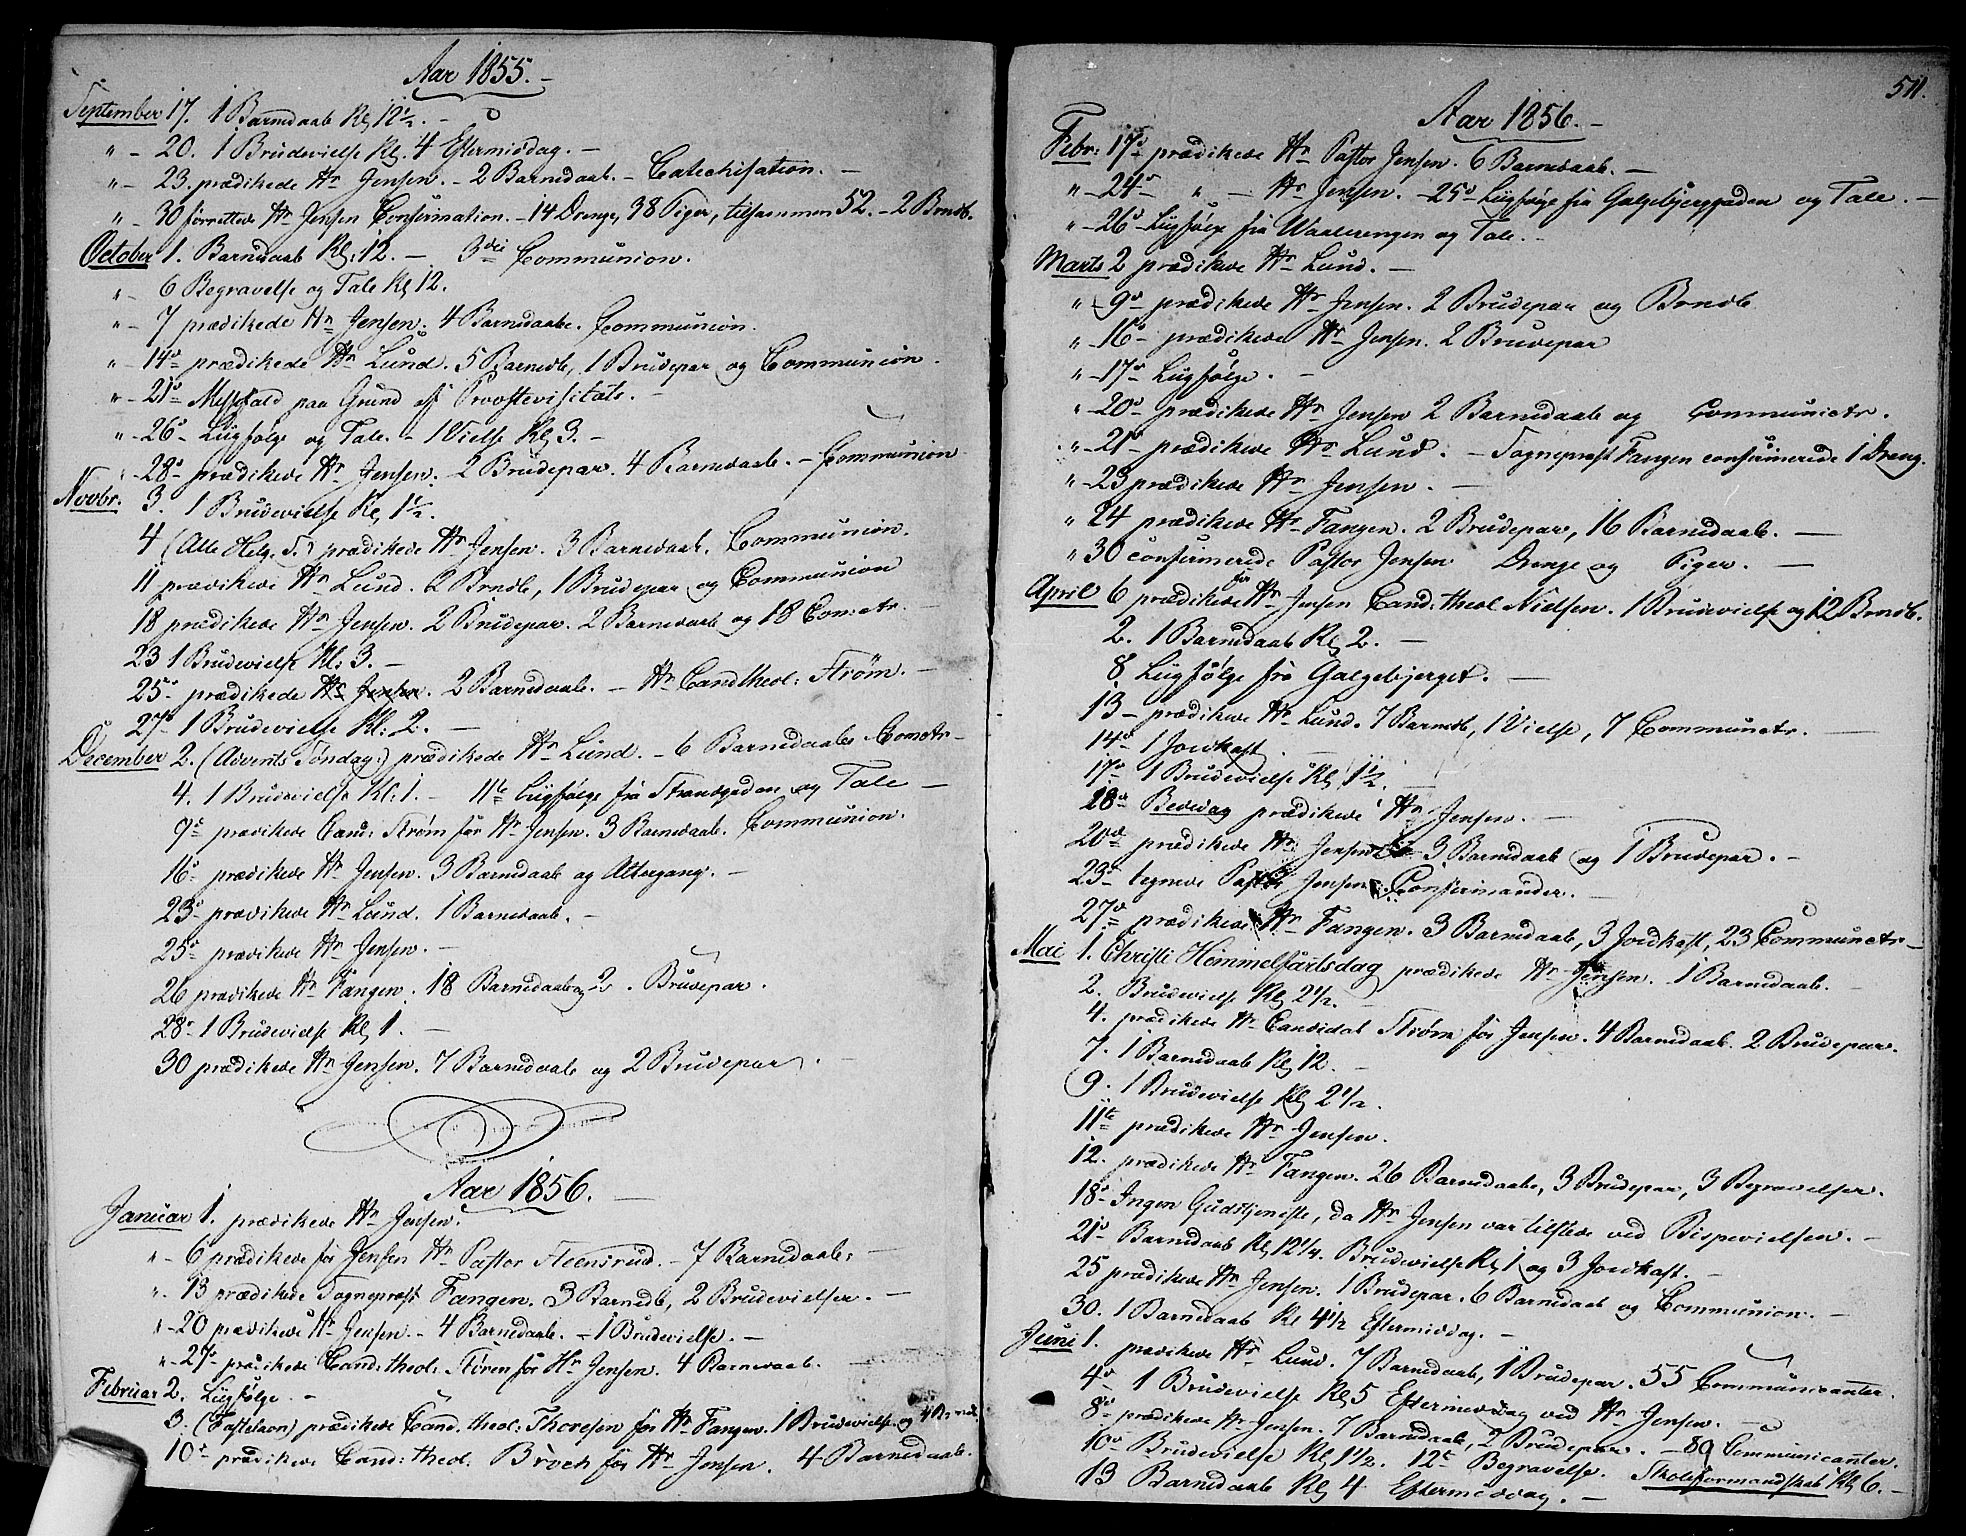 Aar 1855. -
September 17. 1 Barnedaab Kl 12½. -
" - 20. 1 Brudevielse Kl. 4 Eftermiddag. -
" - 23. prædikede Hr Jensen. - 2 Barnedaab. - Catechisation. -
" - 30 forrettede Hr Jensen Confirmation. - 14 Drenge, 38 Piger, tilsammen 52. - 2 Brndb.
October 1. Barnedaab Kl: 12. - 3die Communion.
" - 6 Begravelse og Tale Kl 12.
" - 7 prædikede Hr Jensen. 4 Barnedaabe. Communion.
" - 14de prædikede Hr Lund. 5 Barnedb, 1 Brudepar og Communion.
" - 21de Messefald paa Grund af Provstevisitats. -
" - 26de Liigfølge og Tale. - 1 Vielse Kl 3. -
" - 28de prædikede Hr Jensen. 2 Brudepar. 4 Barnedaab. - Communion
Novbr. 3. 1 Brudevielse Kl 1½.
4 (Alle Helg. S.) prædikede Hr Jensen. 3 Barnedaab. Communion.
11 prædikede Hr Lund. 2 Brndb, 1 Brudepar og Communion
18 prædikede Hr Jensen. 2 Brudepar. 2 Barnedaab og 18 Comctr. -
23 1 Brudevielse Kl: 3. -
25de prædikede Hr Jensen. 2 Barnedaab. - Hr Cand theol: Strøm. -
27de 1 Brudevielse Kl: 2. -
December 2. (Advents Søndag.) prædikede Hr Lund. - 6 Barnedaab Comctr -
4. 1 Brudevielse Kl: 1. - 11te Liigfølge fra Strandgaden og Tale -
9de prædikede Cand: Strøm for Hr Jensen. 3 Barnedaab. Communion.
16de prædikede Hr Jensen. 3 Barnedaab og Altergang. -
23de prædikede Hr Lund. 1 Barnedaab. -
25de prædikede Hr Jensen. -
26 prædikede Hr Fangen. 18 Barnedaab og 2. Brudepar.
28de 1 Brudevielse Kl 1. -
30 prædikede Hr Jensen. 7 Barnedaab og 2 Brudepar. -
Aar 1856. -
Januar 1. prædikede Hr Jensen.
" - 6 prædikede for Jensen Hr Pastor Steensrud. - 7 Barnedaab: -
" 13 prædikede Sognepræst Fangen. 3 Barnedb, 2 Brudevielser. -
" - 20 prædikede Hr Jensen. - 4 Barnedaab. - 1 Brudevielse. -
" - 27de prædikede Cand: theol: Støren for Hr Jensen. 4 Barnedaab.
Februar 2. Liigfølge. -
3. (Fastelavn) prædikede Cand. theol: Thoresen for Hr Fangen. 1 Brudevielse og 4
10de prædikede Cand: theol: Broch for Hr Jensen. 4 Barnedaab.
511.
Aar 1856. -
Febr: 17de prædikede Hr Pastor Jensen. 6 Barnedaab. -
" - 24de " - Hr Jensen. - 25de Liigfølge fra Galgebjerggaden og Tale. -
" - 26de Liigfølge fra Waalerengen og Tale. -
Marts 2 prædikede Hr Lund. -
" - 9de prædikede Hr Jensen. 2 Brudepar og Brndb
" - 16de prædikede Hr Jensen. 2 Brudepar
" - 17de Liigfølge. -
" - 20de prædikede Hr Jensen 2 Barnedaab og Communictr.
" - 21de prædikede Hr Lund. - Sognepræst Fangen confirmerede 1 Dreng.
" - 23 prædikede Hr Jensen. -
" 24 prædikede Hr Fangen. 2 Brudepar, 16 Barnedaab. -
" 30 confirmerede Pastor Jensen Drenge og Piger. -
April 6 prædikede for Hr Jensen Cand: theol Nielsen. 1 Brudevielse og 12 Brndb.
2. 1 Barnedaab Kl 2. -
8. Liigfølge fra Galgebjerget. -
13 - prædikede Hr Lund. 7 Barnedb, 1 Vielse, 7 Communctr. -
14de 1 Jordkast. -
17de 1 Brudevielse Kl 1½. -
18de Bededag prædikede Hr Jensen. -
20de prædikede Hr Jensen 3 Barnedaab og 1 Brudepar. -
23de tegnede Pastor Jensen Confirmander. -
27de prædikede Hr Fangen. 3 Barnedaab, 3 Jordkast, 23 Communctr -
Mai 1. Christi Himmelfartsdag prædikede Hr Jensen. 1 Barnedaab. -
2. Brudevielse Kl 2½. -
4. prædikede Hr Candidat Strøm for Jensen. 4 Barnedaab. 2 Brudepar.
7. 1 Barnedaab Kl 12. -
9. 1 Brudevielse Kl 2½.
11te prædikede Hr Jensen.
12. prædikede Hr Fangen. 26 Barnedaab, 3 Brudepar, 3 Begravelser.
18de Ingen Gudstjeneste, da Hr Jensen var tilstede ved Bispevielsen. -
21de Barnedaab Kl 12¼. Brudevielse Kl 1 og 3 Jordkast. -
25 prædikede Hr Jensen. 1 Brudepar. 6 Barnedaab og Communion. -
30. 1 Barnedaab Kl 4½ Eftermiddag. -
Juni 1. prædikede Hr Lund. 7 Barnedaab, 1 Brudepar. 55 Communicanter.
4de 1 Brudevielse Kl 5 Eftermiddag ved Hr Jensen. -
8de prædikede Hr Jensen. 7 Barnedaab, 2 Brudepar. - 89 Communicanter.
10de Brudevielse Kl 1½. 12te Begravelse. Skoleformandskab Kl 6. -
13 Barnedaab Kl 4 Eftermiddag. -